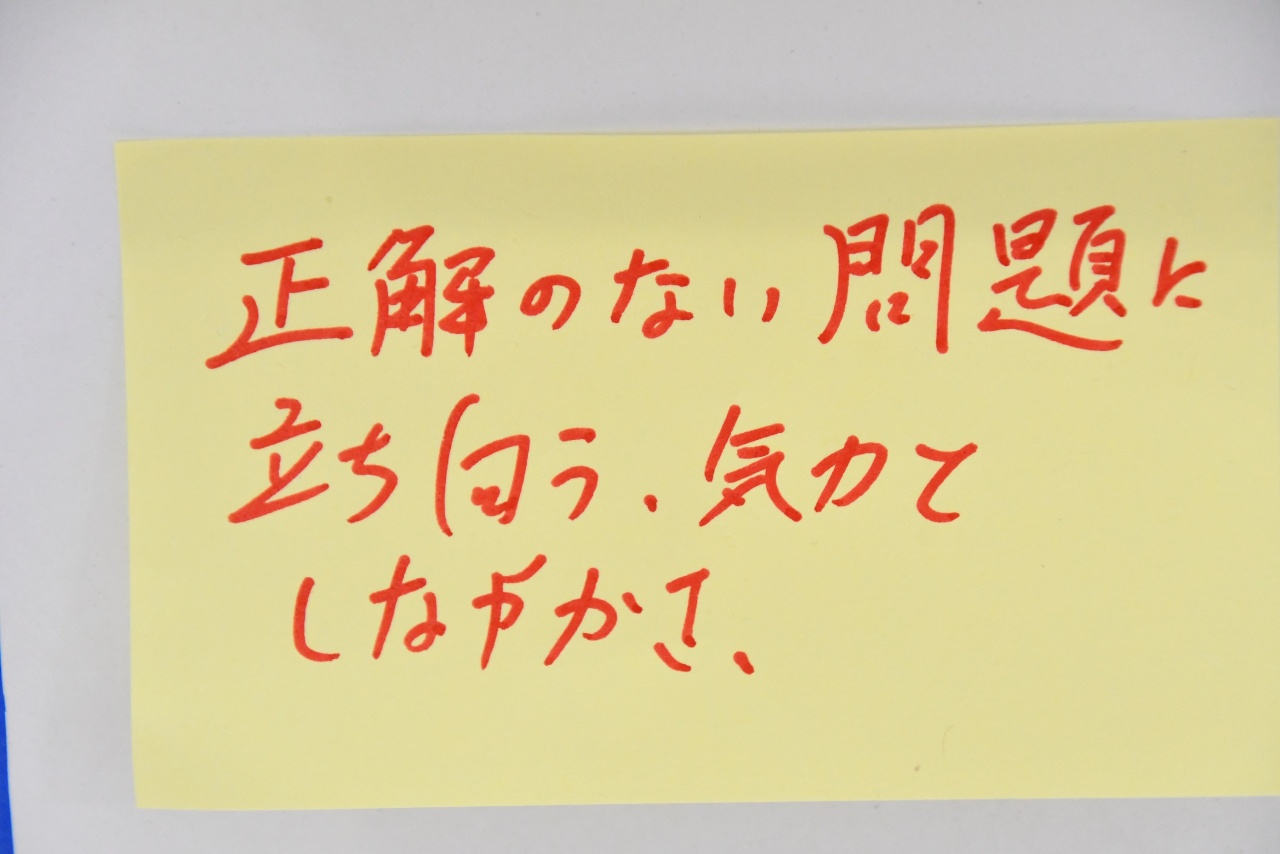 正解のない問題に
立ち向う、気力と
しなやかさ、